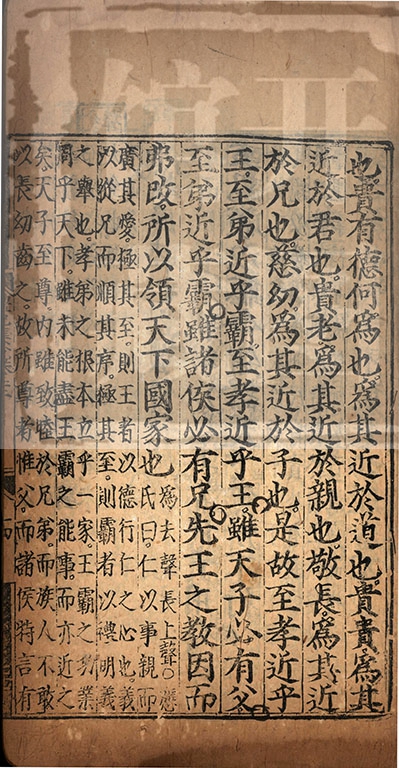 也貴有德何爲也爲其近於道也貴貴爲其
近於君也貴老爲其近於親也敬長爲其近
於兄也慈幼爲其近於子也是故至孝近乎
王至弟近乎霸至孝近乎王雖天子必有父
至弟近乎霸雖諸侯必有兄先王之教因而
弗改所以領天下國家也
爲去聲長上聲○應
氏曰仁以事親而
廣其愛極其至則王者以德行仁之心也義
以從兄而順其序極其至則霸者以禮明義
之舉也孝弟之根本立乎一家王霸之功業
周乎天下雖未能盡王霸之能事而亦近之
矣天子至尊內雖致睦於兄弟而族人不敢
以長幼齒之故所尊者惟父而諸侯特言有